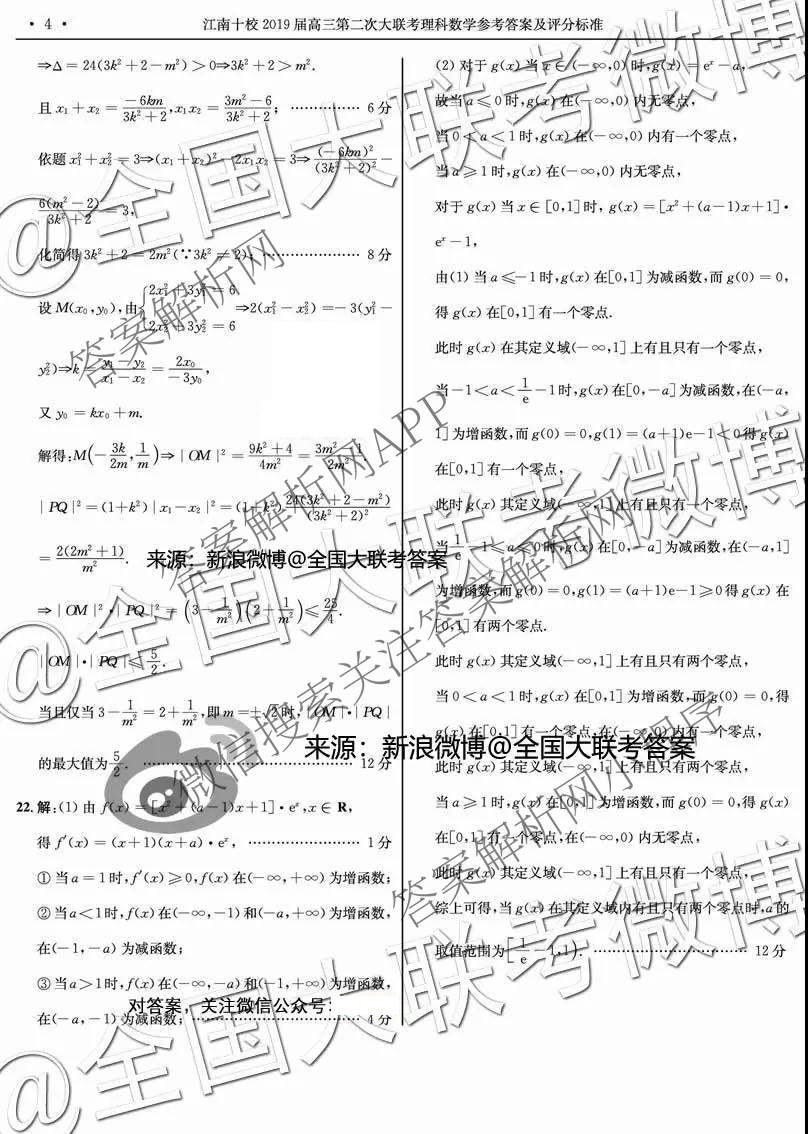 · 4 ·
江南十校 2019 届高三第二次大联考理科数学参考答案及评分标准
⇒Δ = 24(3k² + 2 − m²) > 0⇒3k² + 2 > m².
且 x₁ + x₂ = −6km/(3k² + 2), x₁x₂ = (3m² − 6)/(3k² + 2); …………… 6 分
依题 x₁² + x₂² = 3⇒(x₁ + x₂)² − 2x₁x₂ = 3⇒ (−6km)²/(3k² + 2)² −
6(m² − 2)/(3k² + 2) = 3,
化简得 3k² + 2 = 2m² (∵3k² ≠ 2); ………………… 8 分
设 M(x₀, y₀), 由 { 2x₁² + 3y₁² = 6
2x₂² + 3y₂² = 6 ⇒2(x₁² − x₂²) = − 3(y₁² −
y₂²)⇒k = (y₁ − y₂)/(x₁ − x₂) = 2x₀/(−3y₀),
又 y₀ = kx₀ + m.
解得: M(− 3k/2m, 1/m)⇒ | OM |² = (9k² + 4)/4m² = (3m² − 1)/2m².
| PQ |² = (1+k²) | x₁ − x₂ |² = (1+k²) 24(3k² + 2 − m²)/(3k² + 2)²
= 2(2m² + 1)/m².
⇒ | OM |² · | PQ |² = (3 − 1/m²)(2 + 1/m²) ≤ 25/4.
| OM | · | PQ | ≤ 5/2.
当且仅当 3 − 1/m² = 2 + 1/m², 即 m = ±√2 时, | OM | · | PQ |
的最大值为 5/2. …………………………………… 12 分
22. 解: (1) 由 f(x) = [x² + (a − 1)x + 1] · eˣ, x ∈ R,
得 f′(x) = (x + 1)(x + a) · eˣ, …………………… 1 分
① 当 a = 1 时, f′(x) ≥ 0, f(x) 在(− ∞, + ∞) 为增函数;
② 当 a < 1 时, f(x) 在(− ∞, − 1) 和(− a, + ∞) 为增函数,
在(− 1, − a) 为减函数;
③ 当 a > 1 时, f(x) 在(− ∞, − a) 和(− 1, + ∞) 为增函数,
在(− a, − 1) 为减函数; ………………………… 4 分
(2) 对于 g(x) 当 x ∈ (− ∞, 0) 时, g(x) = eˣ − a,
故当 a ≤ 0 时, g(x) 在(− ∞, 0) 内无零点,
当 0 < a < 1 时, g(x) 在(− ∞, 0) 内有一个零点,
当 a ≥ 1 时, g(x) 在(− ∞, 0) 内无零点,
对于 g(x) 当 x ∈ [0, 1] 时, g(x) = [x² + (a − 1)x + 1] ·
eˣ − 1,
由(1) 当 a ≤ − 1 时, g(x) 在[0, 1] 为减函数, 而 g(0) = 0,
得 g(x) 在[0, 1] 有一个零点.
此时 g(x) 在其定义域(− ∞, 1] 上有且只有一个零点,
当 − 1 < a < 1/e − 1 时, g(x) 在[0, − a] 为减函数, 在(− a,
1] 为增函数, 而 g(0) = 0, g(1) = (a + 1)e − 1 < 0 得 g(x)
在[0, 1] 有一个零点,
此时 g(x) 其定义域(− ∞, 1] 上有且只有一个零点,
当 1/e − 1 ≤ a ≤ 0 时, g(x) 在[0, − a] 为减函数, 在(− a, 1]
为增函数, 而 g(0) = 0, g(1) = (a + 1)e − 1 ≥ 0 得 g(x) 在
[0, 1] 有两个零点.
此时 g(x) 其定义域(− ∞, 1] 上有且只有两个零点,
当 0 < a < 1 时, g(x) 在[0, 1] 为增函数, 而 g(0) = 0, 得
g(x) 在[0, 1] 有一个零点, 在(− ∞, 0) 内有一个零点,
此时 g(x) 其定义域(− ∞, 1] 上有且只有两个零点,
当 a ≥ 1 时, g(x) 在[0, 1] 为增函数, 而 g(0) = 0, 得 g(x)
在[0, 1] 有一个零点, 在(− ∞, 0) 内无零点,
此时 g(x) 其定义域(− ∞, 1] 上有且只有一个零点,
综上可得, 当 g(x) 在其定义域内有且只有两个零点时, a 的
取值范围为 [1/e − 1, 1). ………………………… 12 分
来源：新浪微博@全国大联考答案
来源：新浪微博@全国大联考答案
对答案，关注微信公众号：
@全国大联考微博
@全国大联考微博
@全国大联考微博
答案解析网
答案解析网APP
微信搜索关注答案解析网
答案解析网小程序